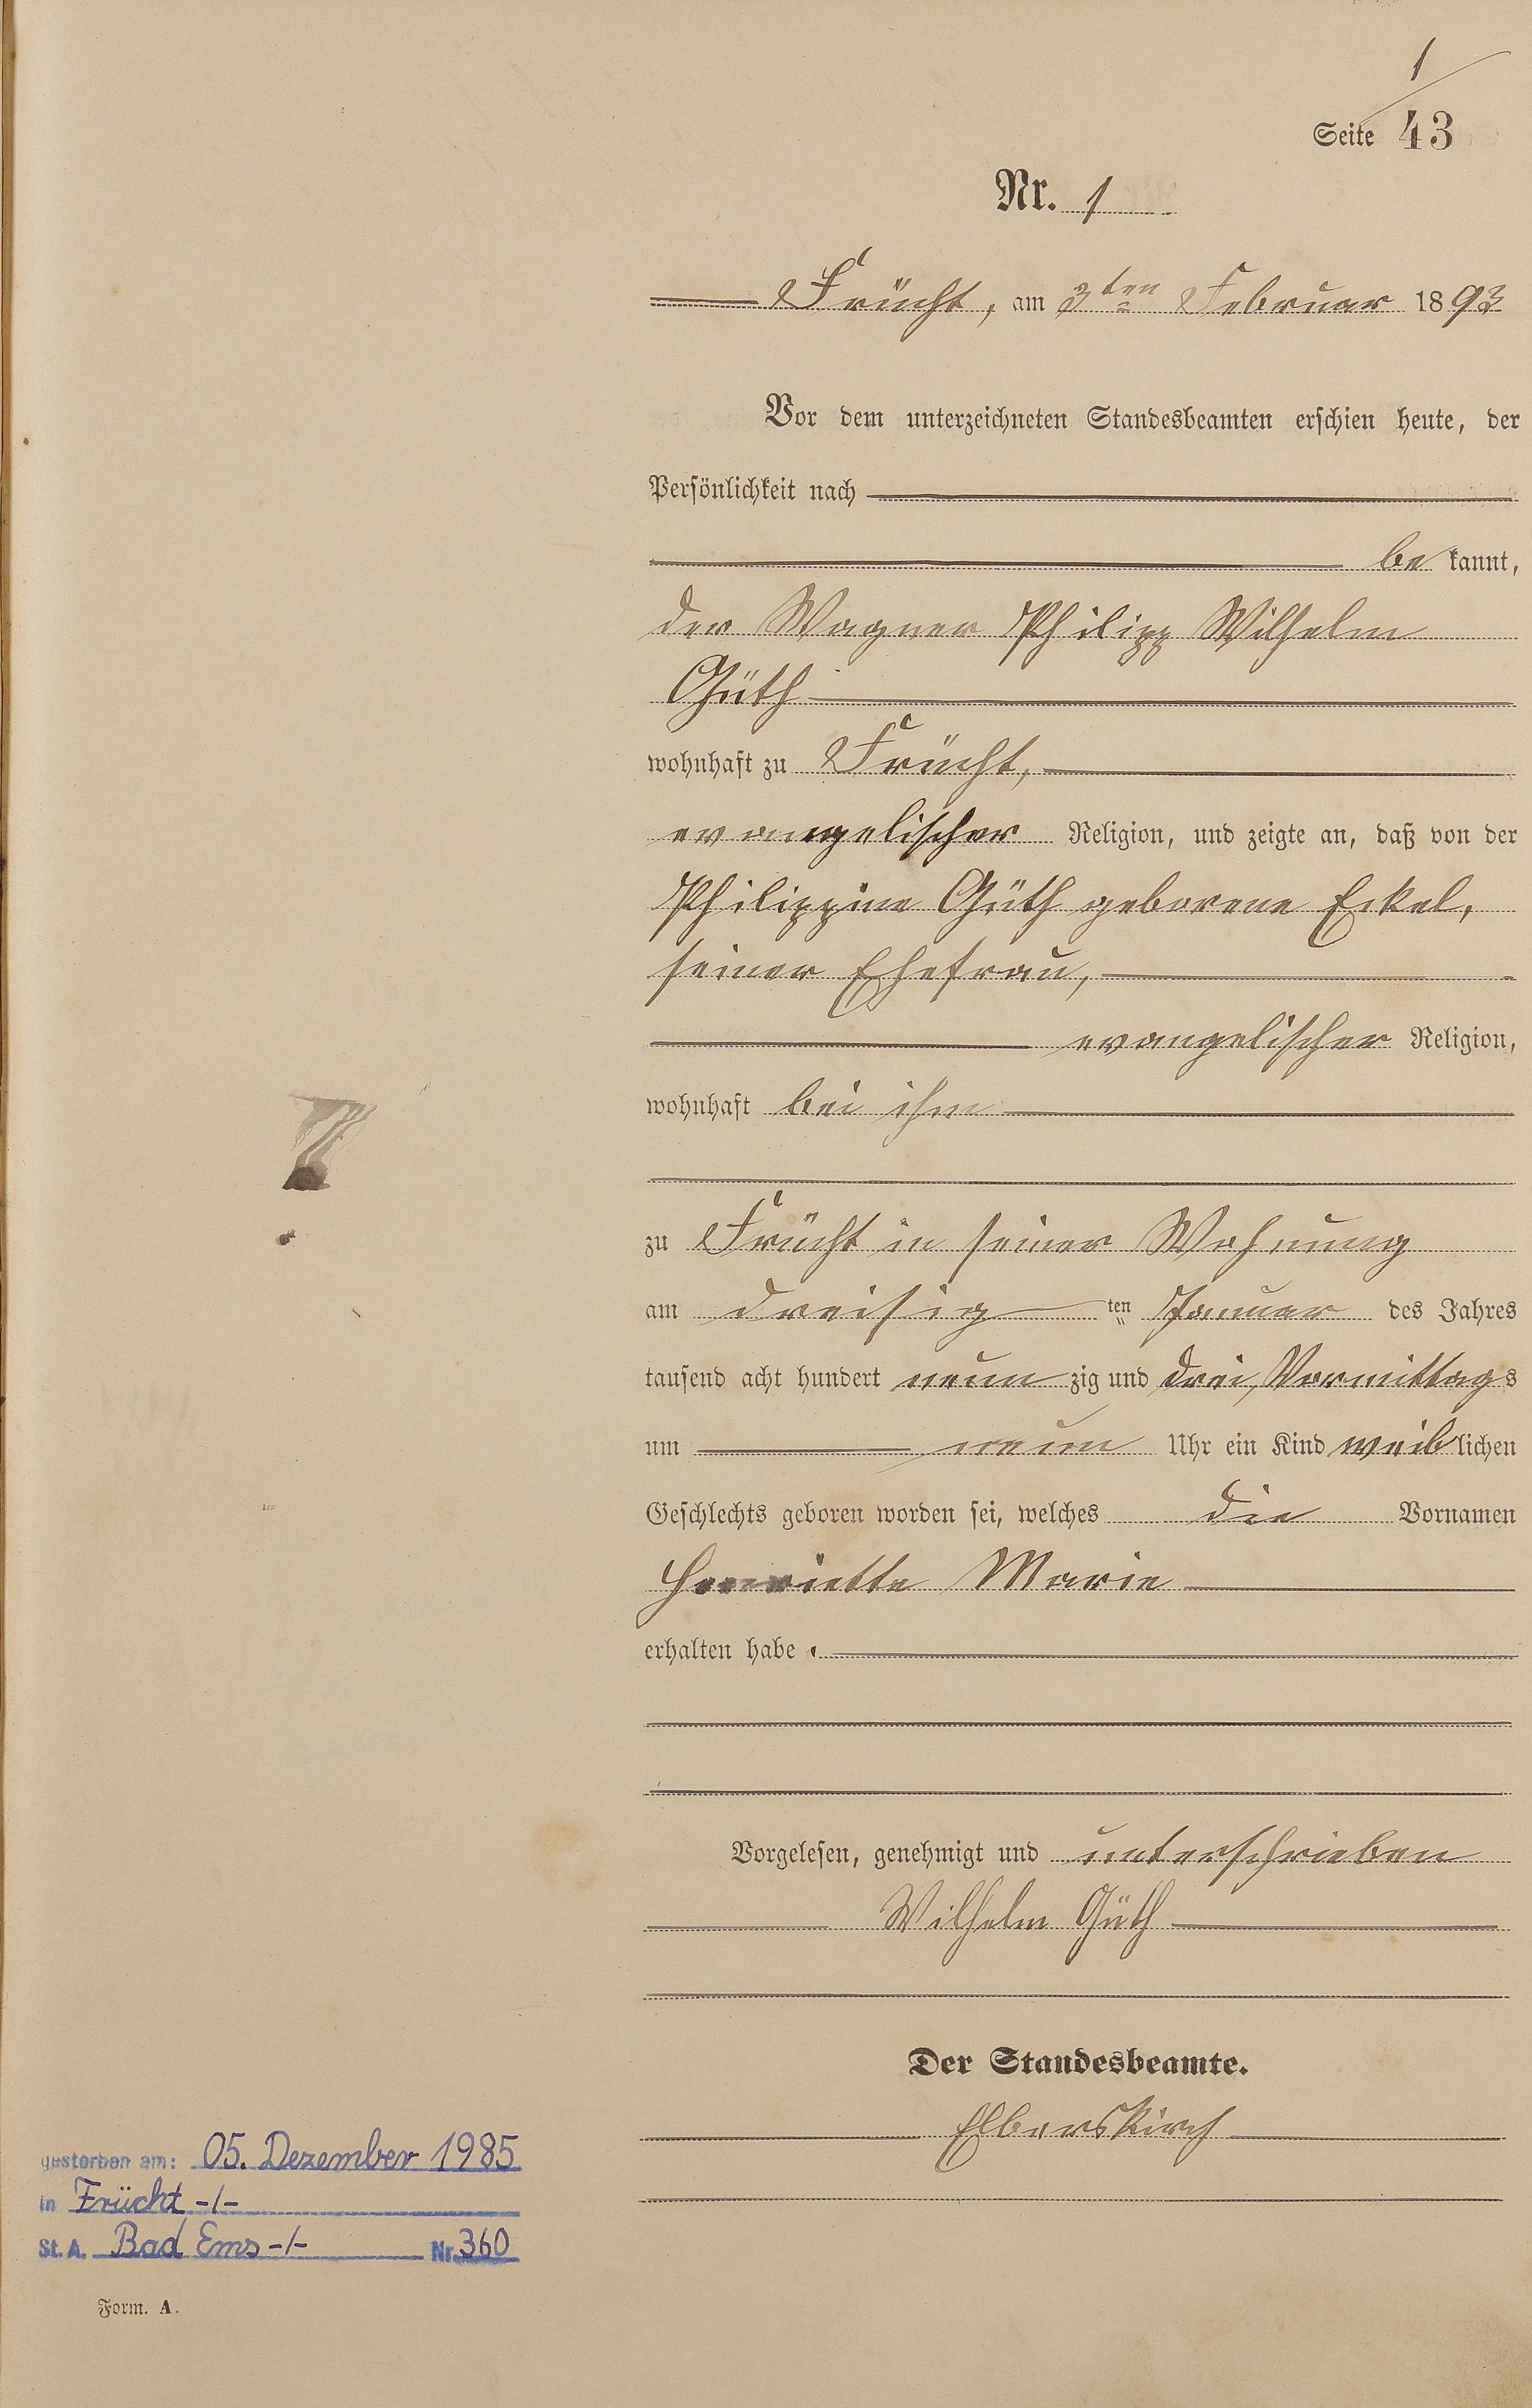 1
Seite 43
Nr. 1
Frücht, am 3ten Februar 1893
Vor dem unterzeichneten Standesbeamten erschien heute, der
Persönlichkeit nach
bekannt,
der Wagner Philipp Wilhelm
Güth
wohnhaft zu Frücht,
evangelischer Religion, und zeigte an, daß von der
Philippine Güth geborene Eckel,
seiner Ehefrau,
evangelischer Religion,
wohnhaft bei ihm
zu Frücht in seiner Wohnung
am dreisigten Januar des Jahres
tausend acht hundert neunzig und drei, Vormittags
um neun Uhr ein Kind weiblichen
Geschlechts geboren worden sei, welches die Vornamen
Henriette Marie
erhalten habe.
Vorgelesen, genehmigt und unterschrieben
Wilhelm Güth
Der Standesbeamte.
Elberskirch
gestorben am: 05. Dezember 1985
in Frücht -/-
St. A. Bad Ems -/- Nr. 360
Form. A.